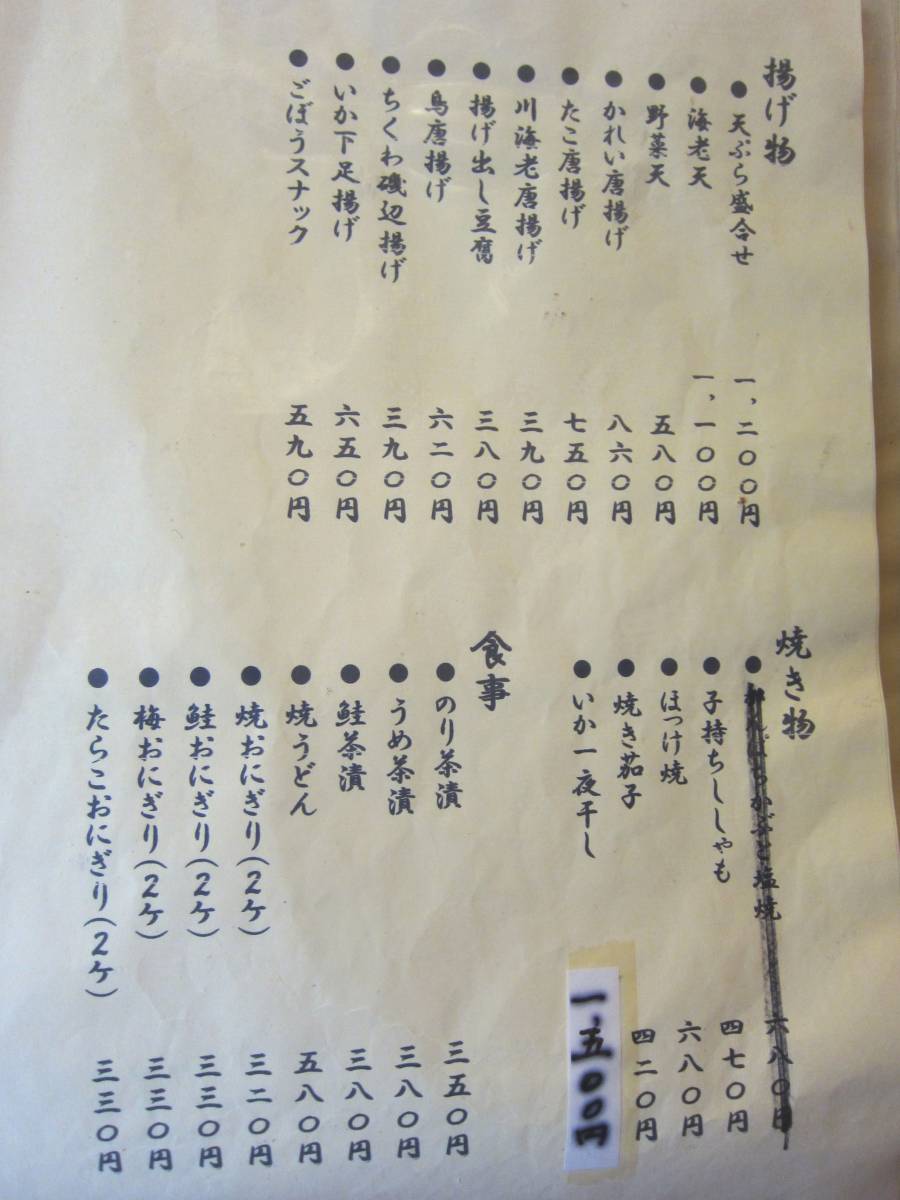 揚げ物
●天ぷら盛合せ 一、二〇〇円
●海老天 一、一〇〇円
●野菜天 五八〇円
●かれい唐揚げ 八六〇円
●たこ唐揚げ 七五〇円
●川海老唐揚げ 三九〇円
●揚げ出し豆腐 三八〇円
●鳥唐揚げ 六二〇円
●ちくわ磯辺揚げ 三九〇円
●いか下足揚げ 六五〇円
●ごぼうスナック 五九〇円
焼き物
●塩焼 六八〇円
●子持ちししゃも 四七〇円
●ほっけ焼 六八〇円
●焼き茄子 四二〇円
●いか一夜干し 一、五〇〇円
食事
●のり茶漬 三五〇円
●うめ茶漬 三八〇円
●鮭茶漬 三八〇円
●焼うどん 五八〇円
●焼おにぎり(2ケ) 三二〇円
●鮭おにぎり(2ケ) 三三〇円
●梅おにぎり(2ケ) 三三〇円
●たらこおにぎり(2ケ) 三三〇円